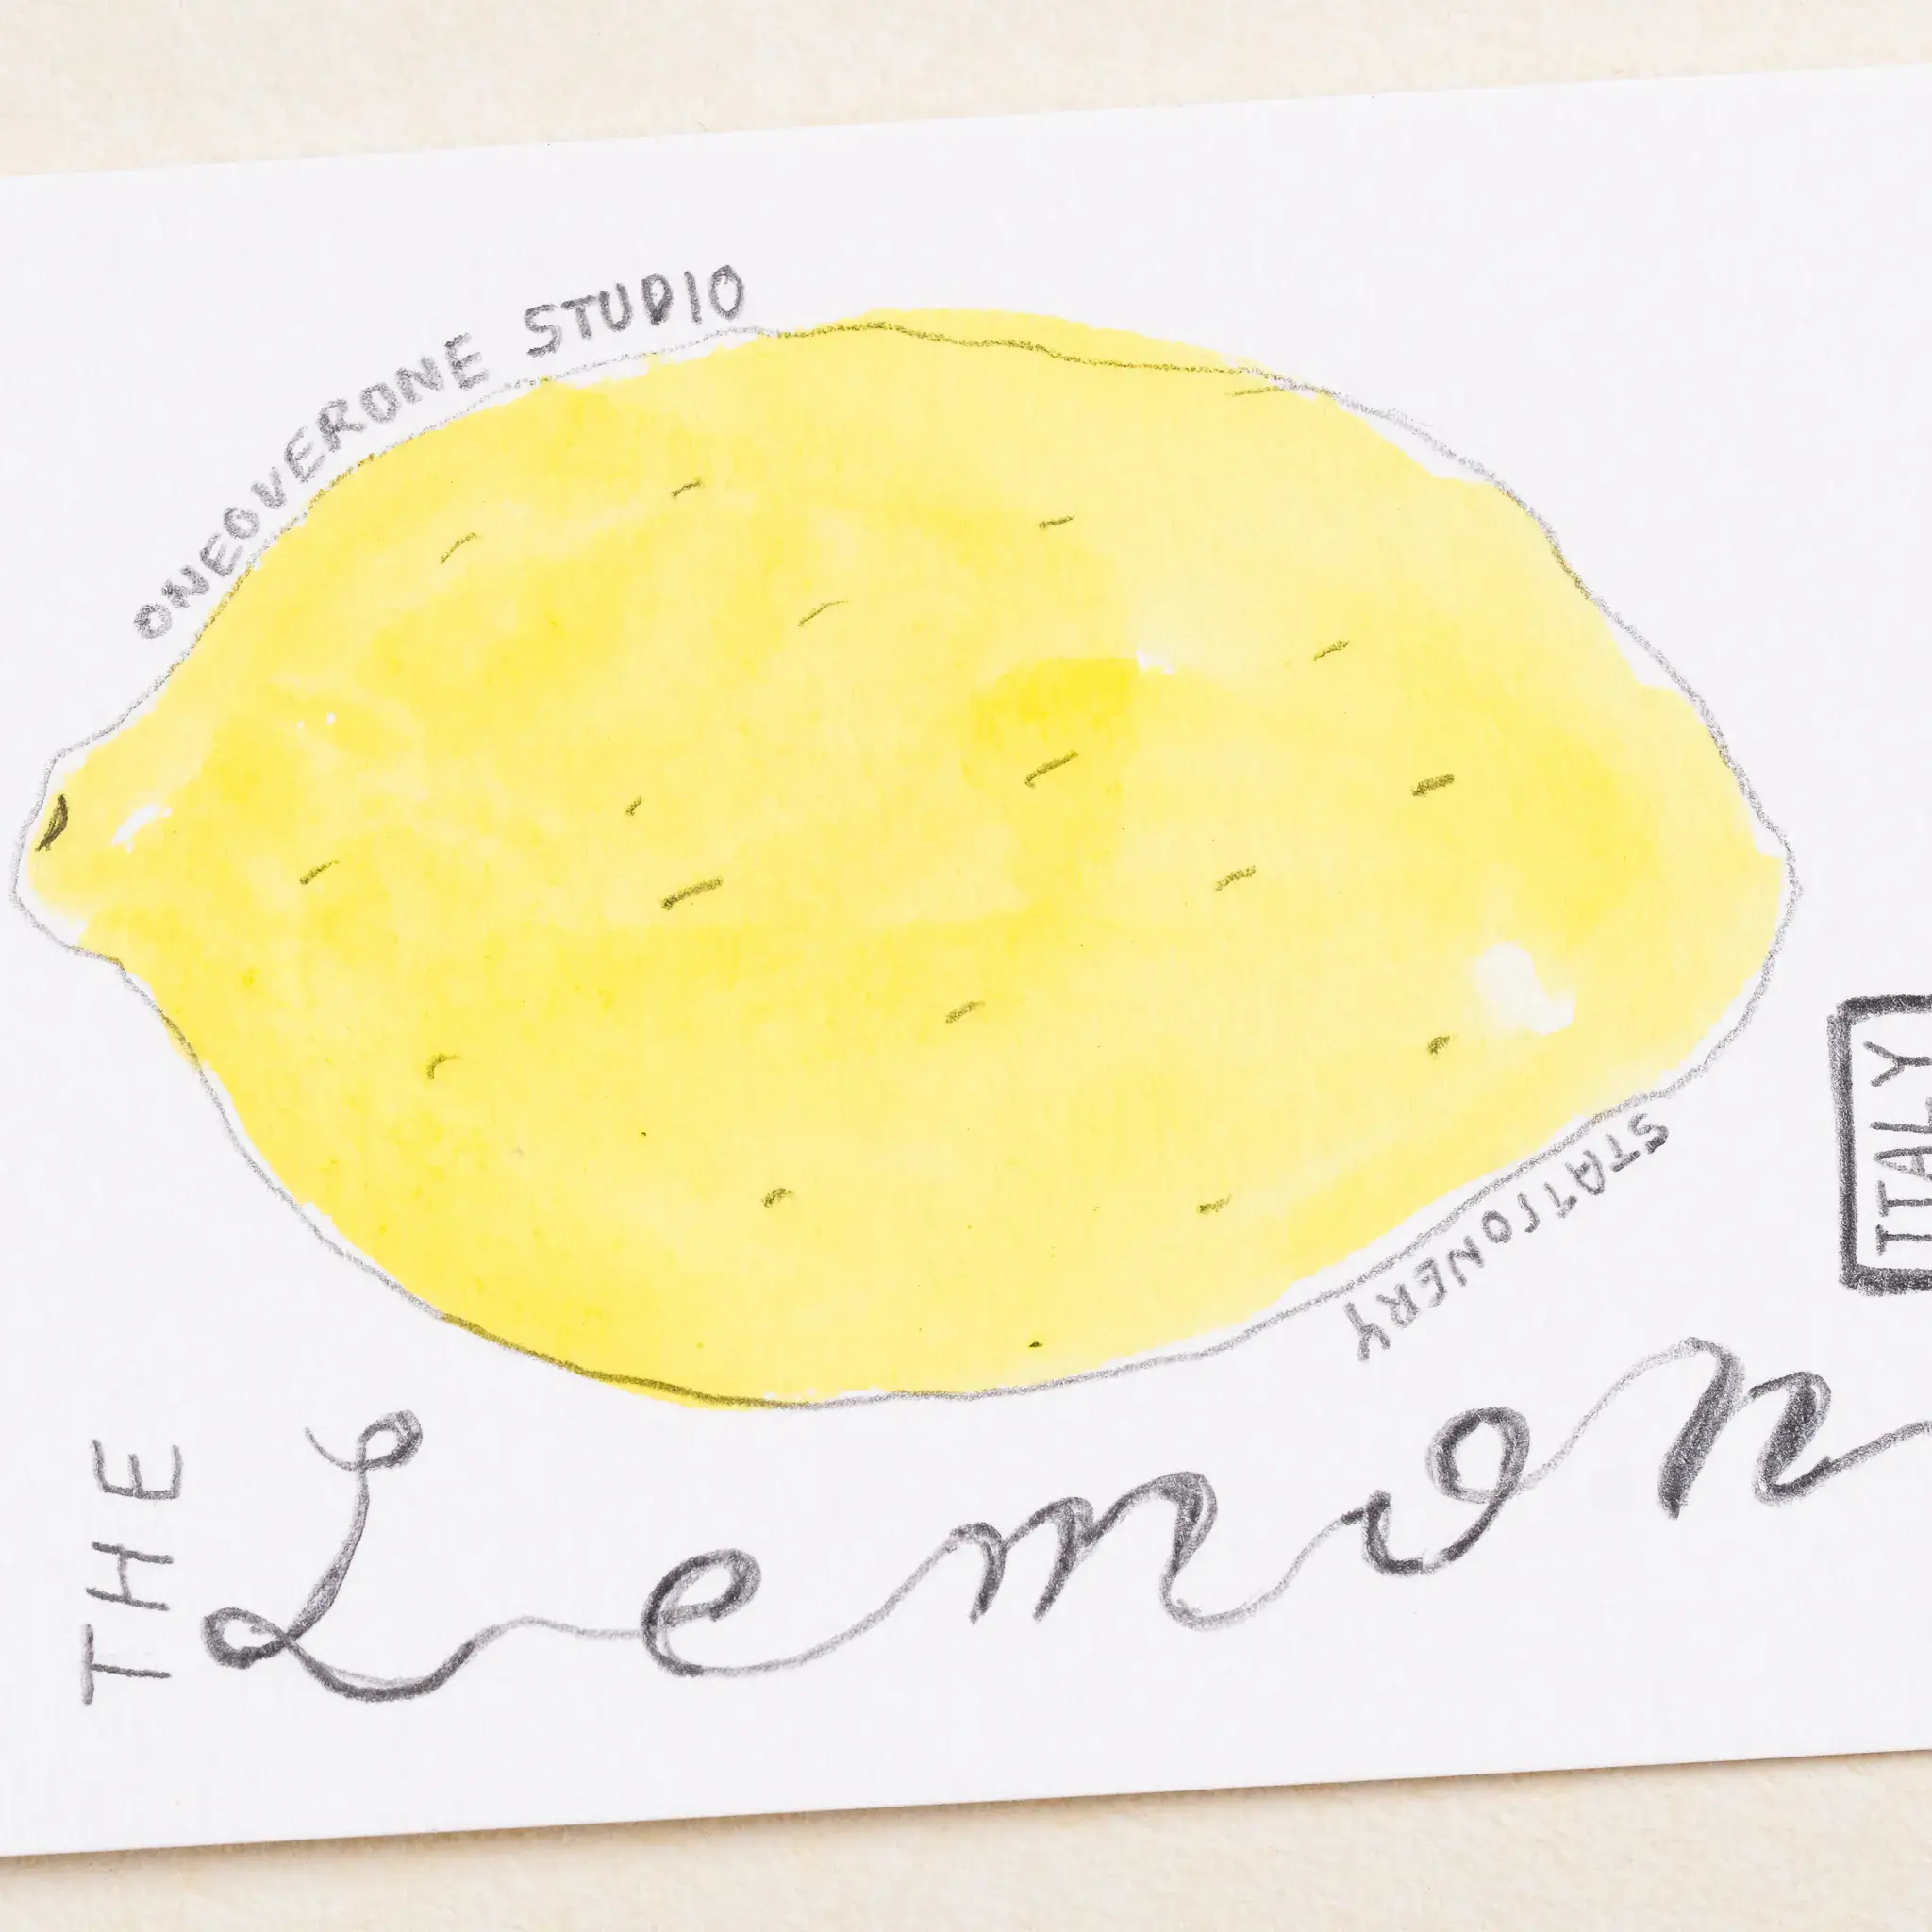 ONEOVERONE STUDIO
STATIONERY
ITALY
THE
Lemon